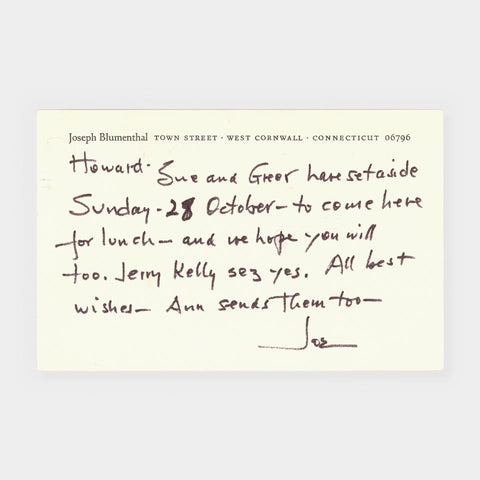 Joseph Blumenthal TOWN STREET · WEST CORNWALL · CONNECTICUT 06796
Howard - Sue and Greer have set aside
Sunday - 28 October - to come here
for lunch - and we hope you will
too. Jerry Kelly sez yes. All best
wishes - Ann sends them too -
Joe